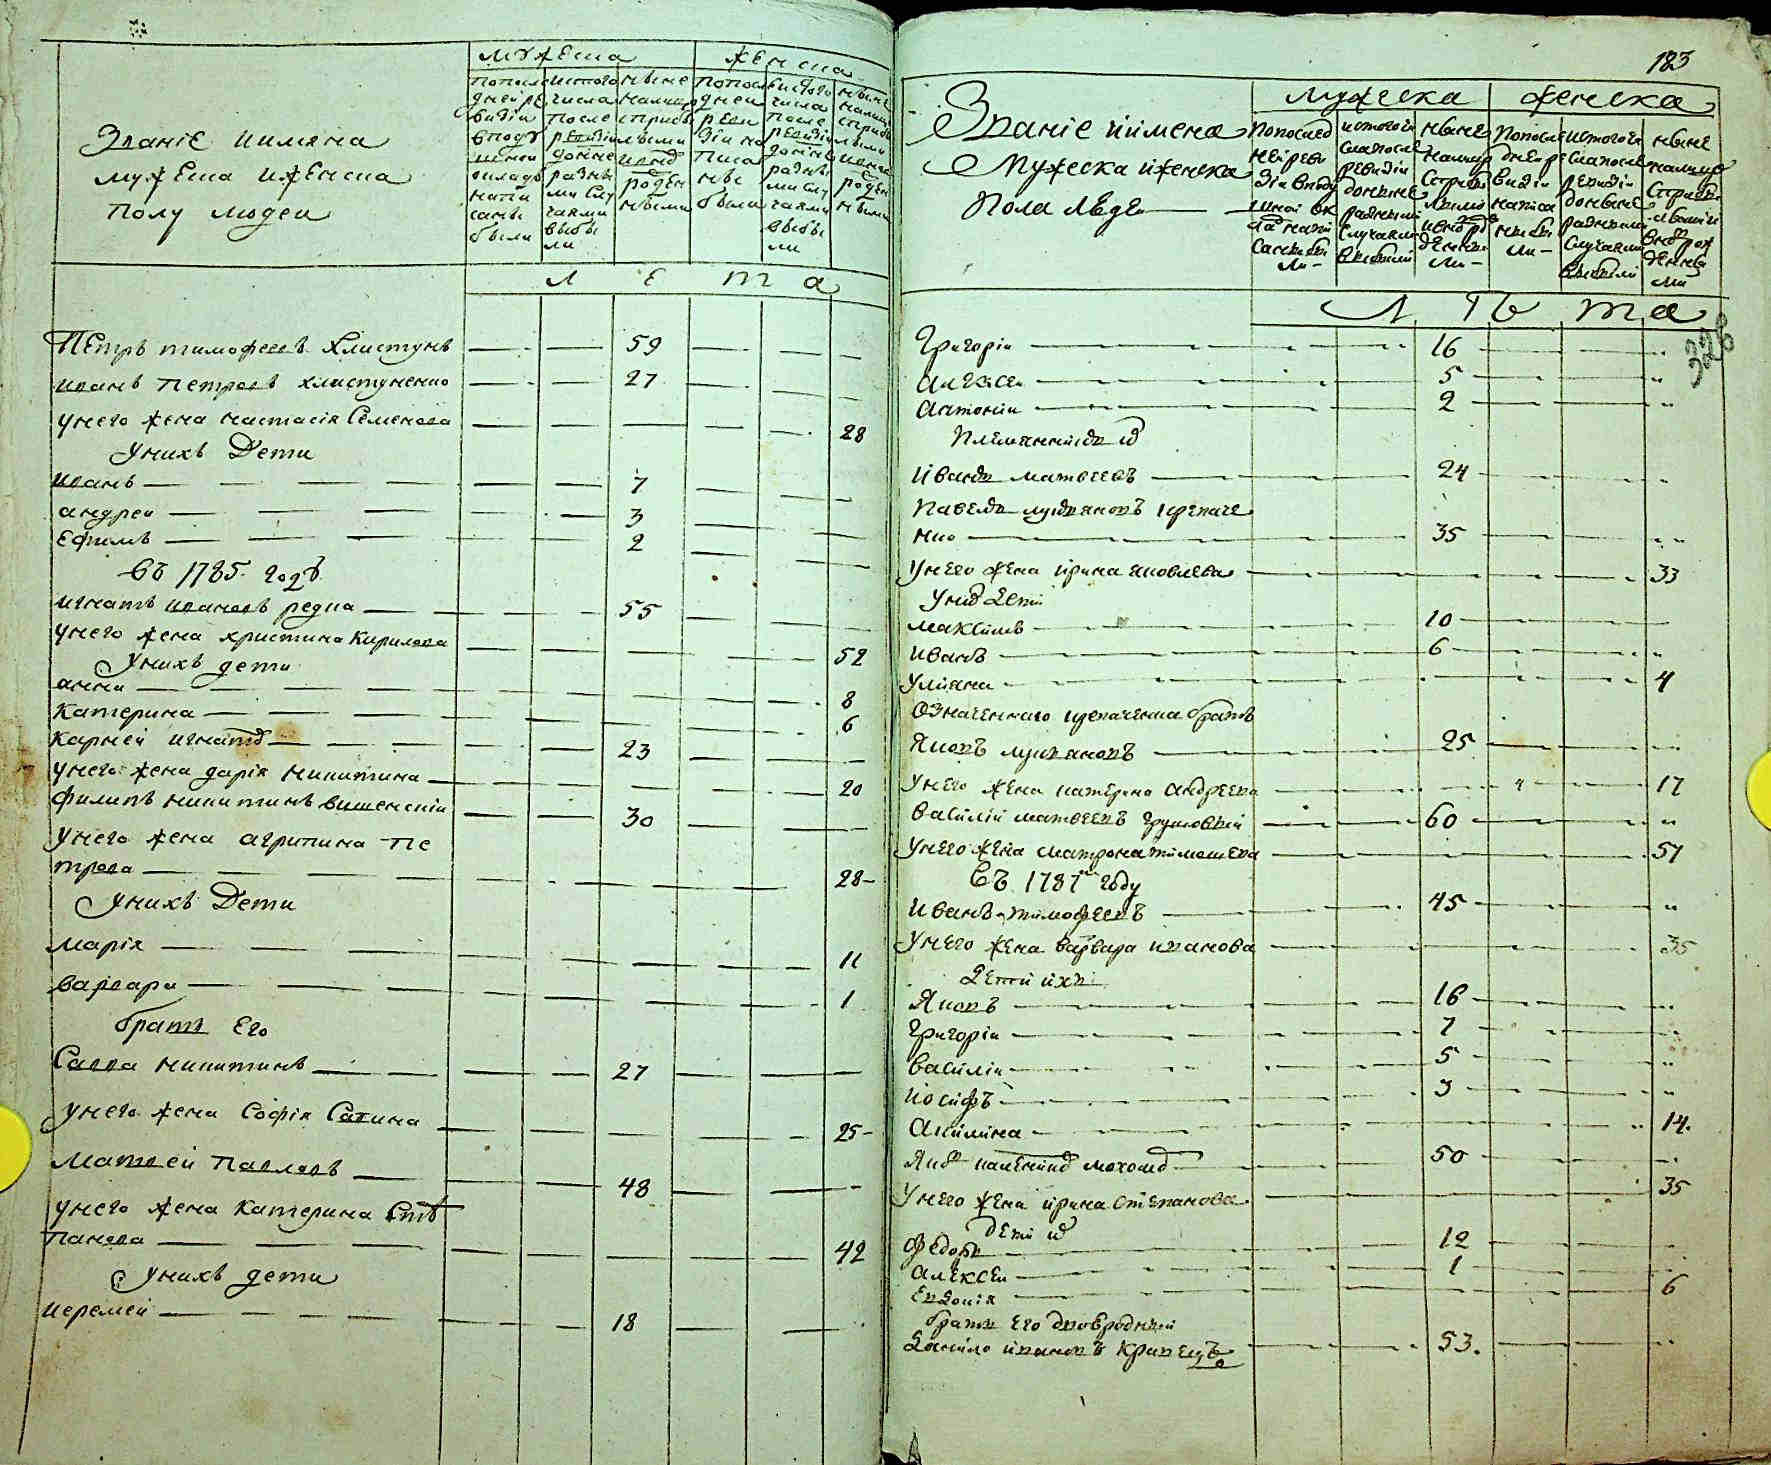 мужеска
женска
Званіе иимяна
мужеска иженска
полу людеи
попослѣдней ревизіи вподушной окладъ написаны были
истого числа после ревизіи донне разными случаями выбыли
нынѣ налицо сприбылыми ивновь рожденными
попослѣдней ревизіи написаны были
истого числа после ревизіи донне разными случаями выбыли
нынѣ налицо сприбылыми ивновь рожденными
Лета
Петръ тимофеевъ хлистунъ 59
иванъ петровъ хлистуненко 27
унего жена настасія Семенова 28
Унихъ Дети
иванъ 7
андреи 3
Ефимъ 2
въ 1785 годѣ
игнатъ ивановъ редка 55
унего жена христина Кирилова 52
Унихъ дети
анна 8
Катерина 6
Карней игнатов 23
унего жена дарія никитина 20
филипъ никитинъ вишенскіи 30
Унего жена агрипина пе
трова 28
Унихъ Дети
марія 11
варвара 1
братъ Его
Савва никитинъ 27
унего жена Софія Савина 25
Матвей павловъ 48
унего жена Катерина Сте
панова 42
Унихъ дети
иеремей 18
183
Званіе иимена
Мужеска иженска
Пола людеи
мужеска
женска
попослед ней реви зіи вподу шной ок лад напи саны бы ли
истого чи сла после ревизіи донине разными случаями выбыли
нынѣ налицо сприбы лыми ивнов ро жденны ми
попосле дней ре визіи написа ны бы ли
истого чи сла после ревизіи донине разними случаями выбыли
нынѣ налицо сприбы лыми вновь рож денны ми
Лѣта
328
Григоріи 16
Алексеи 5
Антоніи 2
Племянники их
Иванъ матвеевъ 24
Павелъ лукяновъ креначе
нко 35
Унего жена ирина яковлева 33
Уних Дети
максимъ 10
иванъ 6
Уліяна 4
Означенного креначенка братъ
Яковъ лукяновъ 25
Унего жена катерина андреева 17
василіи матвеевъ грушовскій 60
Унего жена матрона тимошева 57
въ 1787м году
Иванъ тимофеевъ 45
Унего жена варвара иванова 35
Дети ихъ
Яковъ 16
Григоріи 7
василіи 5
иосифъ 3
Акилина 14
50
Унего жена ирина степанова 35
дети их
федоръ 12
алексеи 1
Евдокія 6
братъ его двоюродній
Данило ивановъ кравецъ 53